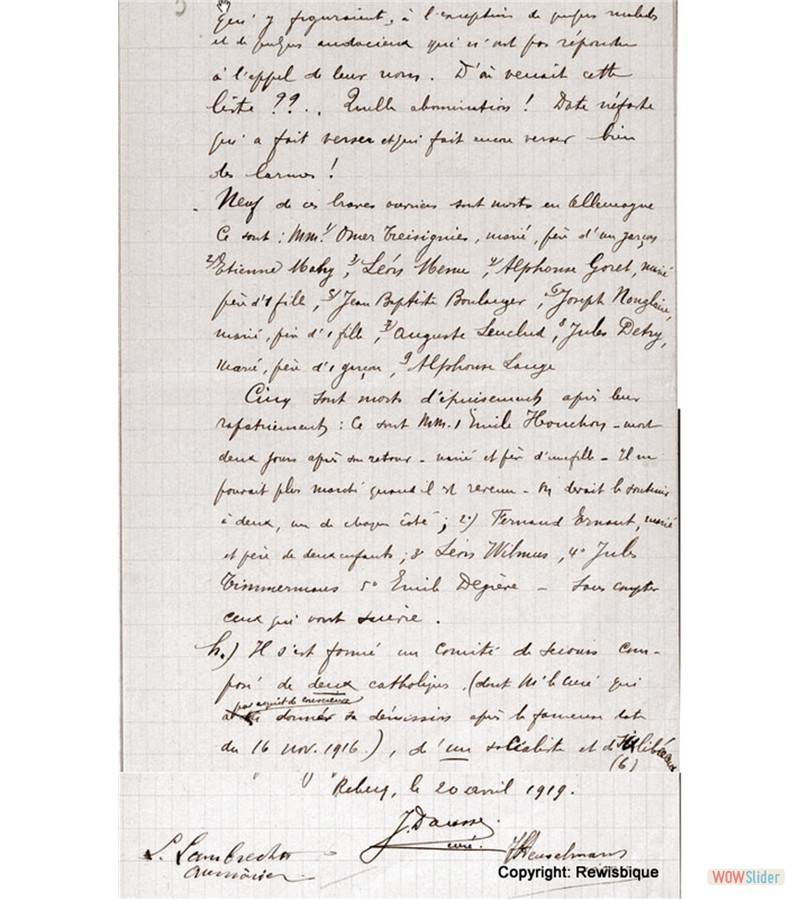 qui y figuraient, à l'exception de quelques malades
et de quelques audacieux qui n'ont pas répondu
à l'appel de leur nom. D'où venait cette
liste ??.. Quelle abomination ! Date néfaste
qui a fait verser et qui fait encore verser bien
des larmes !
Neuf de ces braves ouvriers sont morts en Allemagne
Ce sont : MM. 1/ Omer Treisignies, marié, père d'un garçon
2/ Etienne Mahy, 3/ Léon Menu, 4/ Alphonse Goret, marié
père d'1 fille, 5/ Jean Baptiste Boulanger, 6/ Joseph Nonglaire,
marié, père d'1 fille, 7/ Auguste Lenclud, 8 Jules Detry,
marié, père d'1 garçon, 9 Alphonse Lange
Cinq sont morts d'épuisement après leur
rapatriement : Ce sont MM. 1 Emile Houchon - mort
deux jours après son retour - marié et père d'une fille - Il ne
pouvait plus marcher quand il est revenu - On devait le soutenir
à deux, un de chaque côté ; 2°) Fernand Ernout, marié
et père de deux enfants ; 3° Léon Wilmus, 4° Jules
Timmermans 5° Emile Degrève - Sans compter
ceux qui vont suivre.
h.) Il s'est formé un Comité de secours com-
posé de deux catholiques, (dont Mr le Curé qui
par acquit de conscience
a donné sa démission après la fameuse date
du 16 nov. 1916.), d'un socialiste et d' libéraux
(6)
Rebecq, le 20 avril 1919.
J. Dausse
curé.
L. Lambrechts
aumônier
Heuselmans
Copyright: Rewisbique
WOWSlider